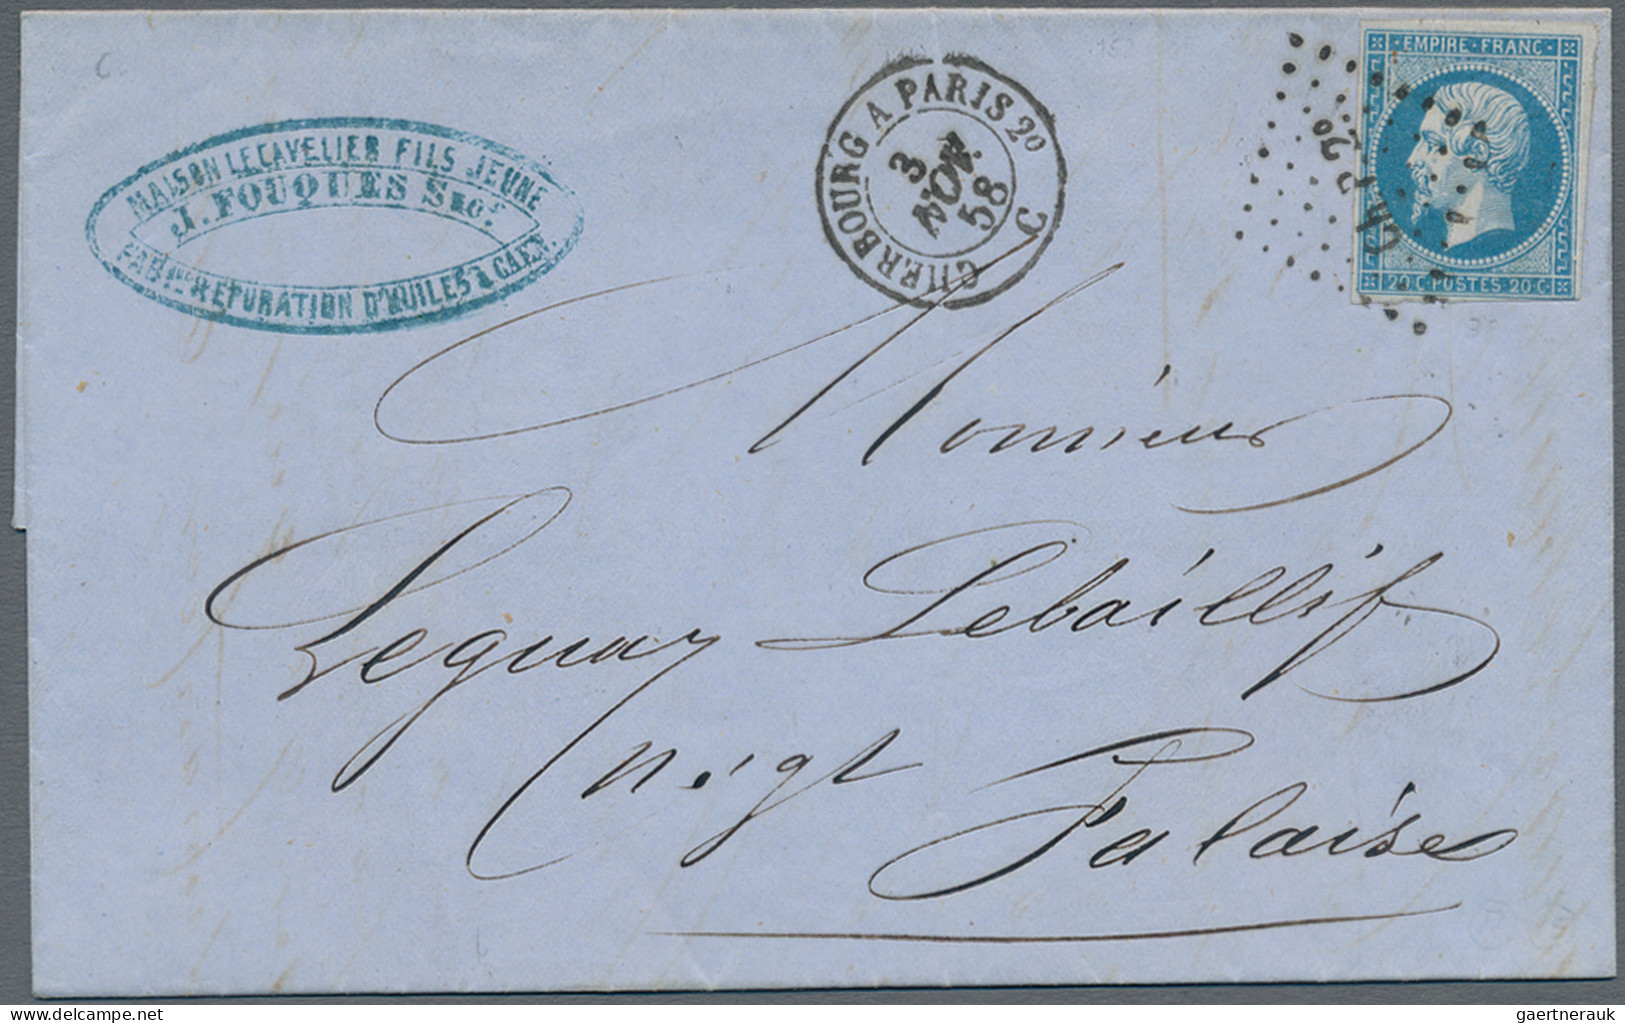 MAISON LECAVELIER FILS JEUNE
J. FOUQUES Sucr
FABon REPURATION D'HUILES à CAEN.
CHERBOURG A PARIS 20
3
NOV.
58
C
EMPIRE·FRANC·
20·C·POSTES·20·C·
Ch P 20
Monsieur
Leguay Lebaillif
négt
Falaise
gaertnerauk